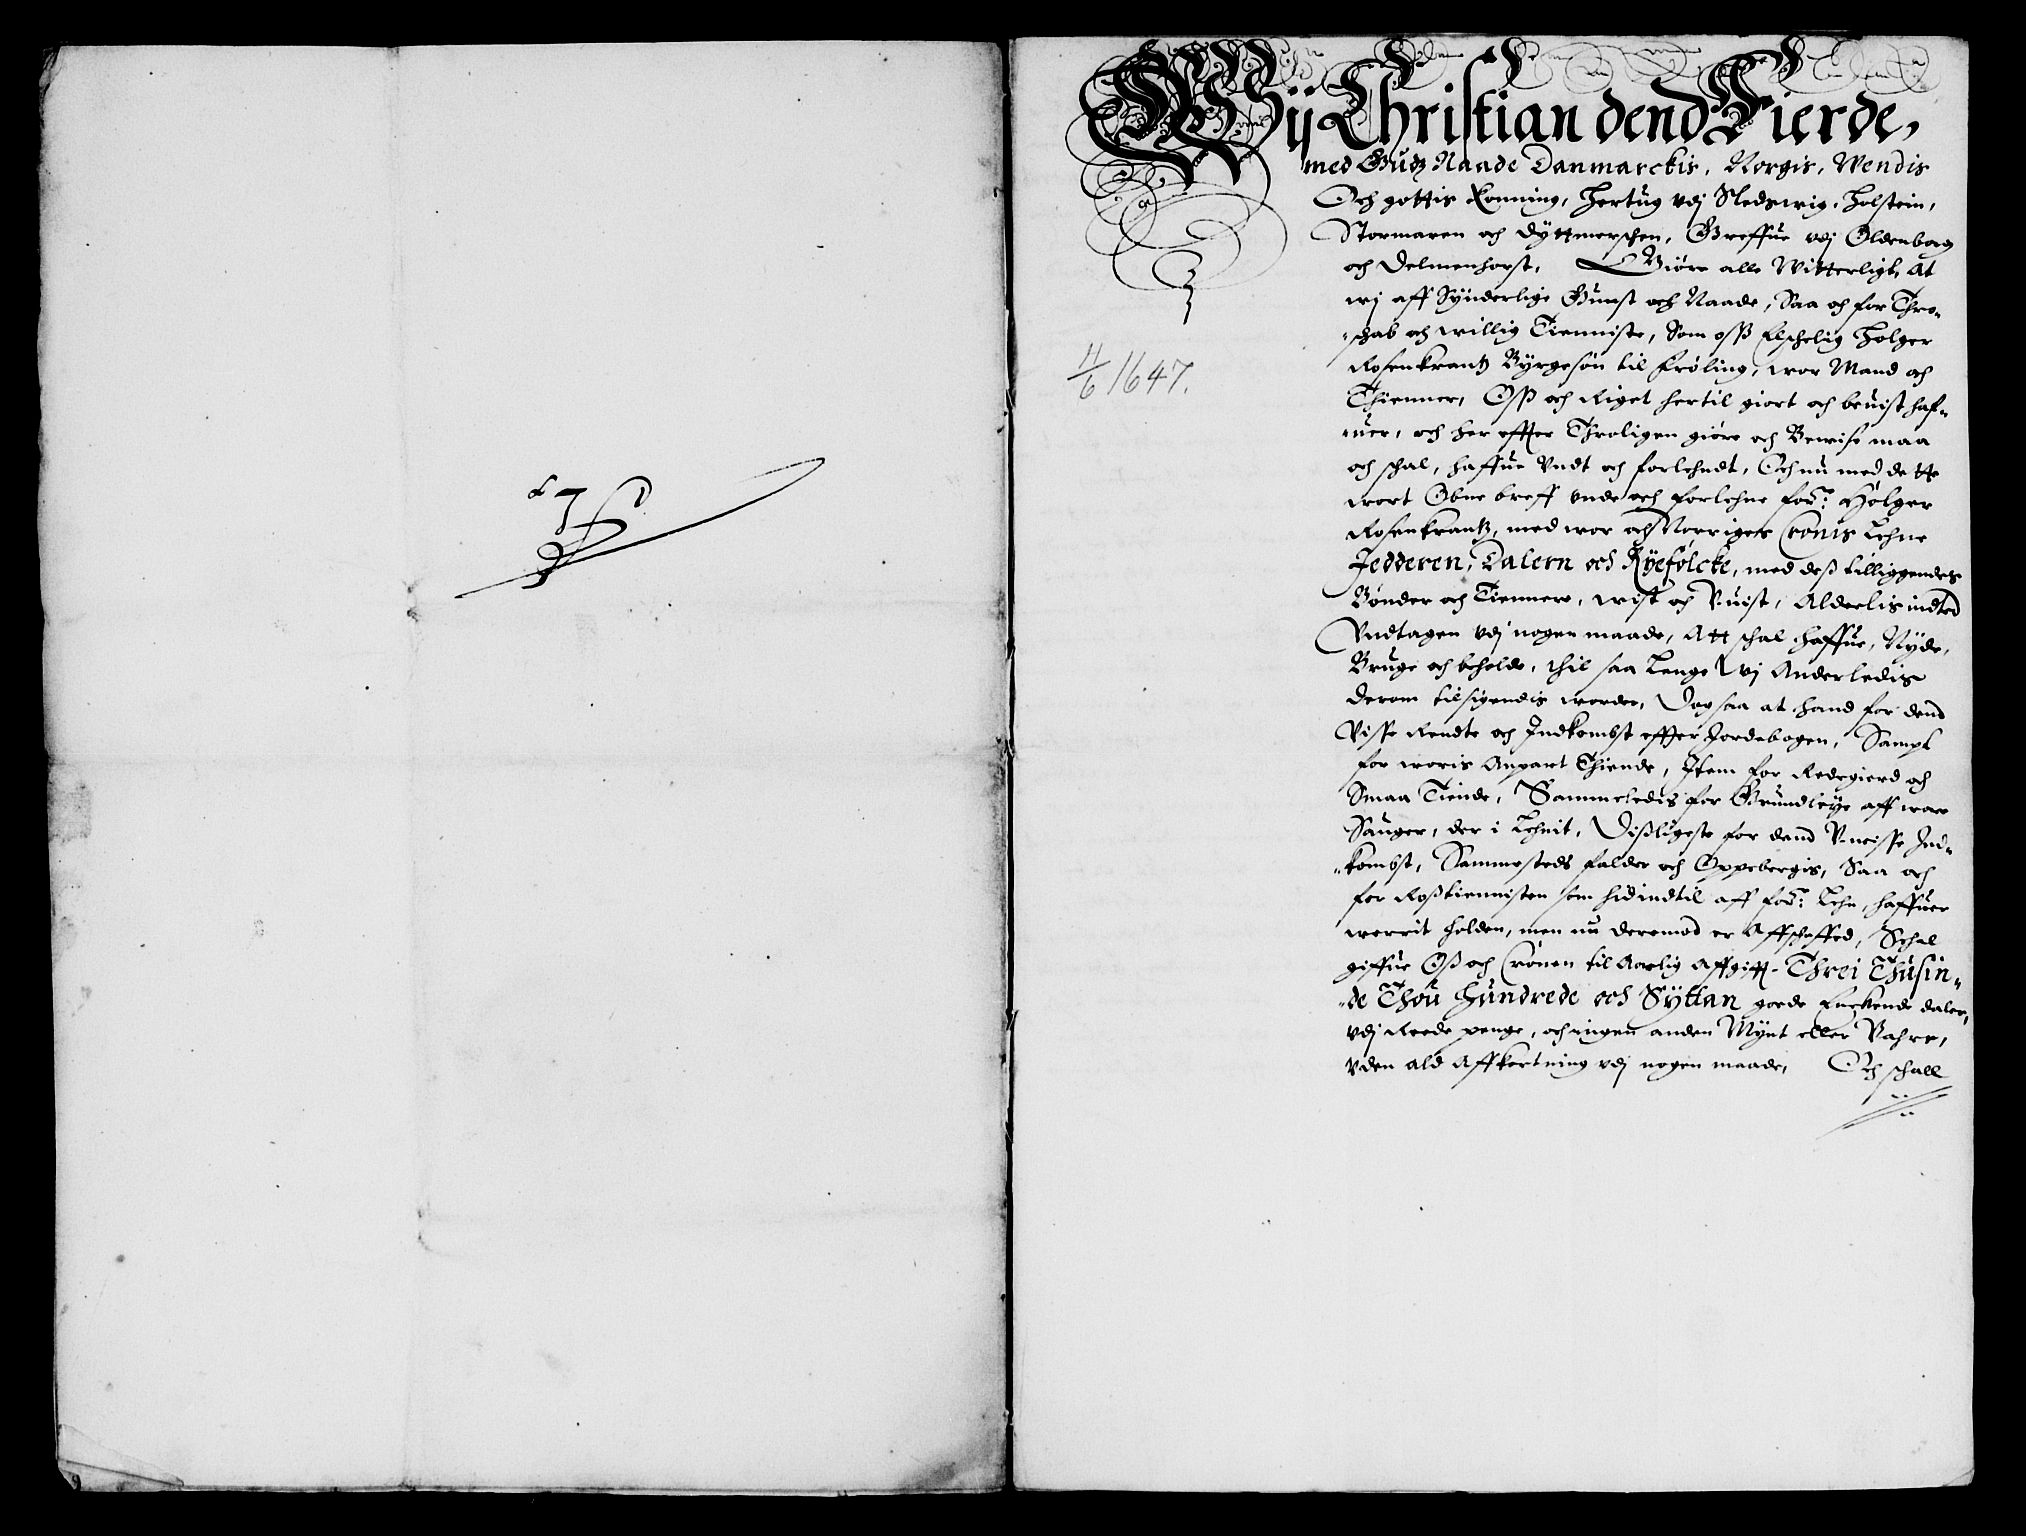 Wij Christian dend Fierde,
med Gudz Naade Danmarckis, Norgis, Wendis
Och gottis Konning, Hertug vdj Sledswig, Holstein,
Stormaren och Dÿttmerschen, Greffue vdj Oldenborg
och Delmenhorst, Giøre alle Witterligt, At
wj aff Sÿnderlige Gunst och Naade, Saa och for Thro-
schab och willig Tienniste, Som oss Elschelig Holger
Rosenkrantz Bÿrgesøn til Frøling, wor Mand och
Thienner, Oss och Riget hertil giort och beuist haf-
uer, och her effter Throligen giøre och Bewise maa
och schal, haffue Vndt och forlehndt, Och nu med dette
wort Obne breff vnde och forlehne for: Holger
Rosenkrantz, med wor och Norrigers Cronis Lehne
Jedderen, Dalern och Rÿefolcke, med dess tilliggendes
Bønder och Tiennere, wist och Vuist, Alderlis indted
Vndtagen vdj nogen maade, Att schal haffue, Nÿde,
Bruge och beholde, thil saa Lenge Wj Anderledis
derom tilsigendis worder, Dog saa at hand for dend
Visse Rendte och Indkombst effter Jordebogen, Sampt
for woris Anpart Thiende, Item for Ledegierd och
Smaa Tiende, Sammeledis for Grundleÿe aff wore
Sauger, der i Lehnit, Disligeste for dend V-uisse Ind-
kombst, Sammesteds falder och Oppebergis, Saa och
for Rosstiennisten som hid indtil aff for: Lehn, haffuer
werrit holden, men nu deremod er Affschaffed, Schal
giffue Oss och Cronen til Aarlig Affgift - Threi Thusin-
de Thou Hundrede och Sÿttan goede Enckende daler,
vdj Reede penge, och ingen anden Mÿnt eller Vahre,
vden ald Affkortning vdj nogen maade, Och schall
4/6 1647.